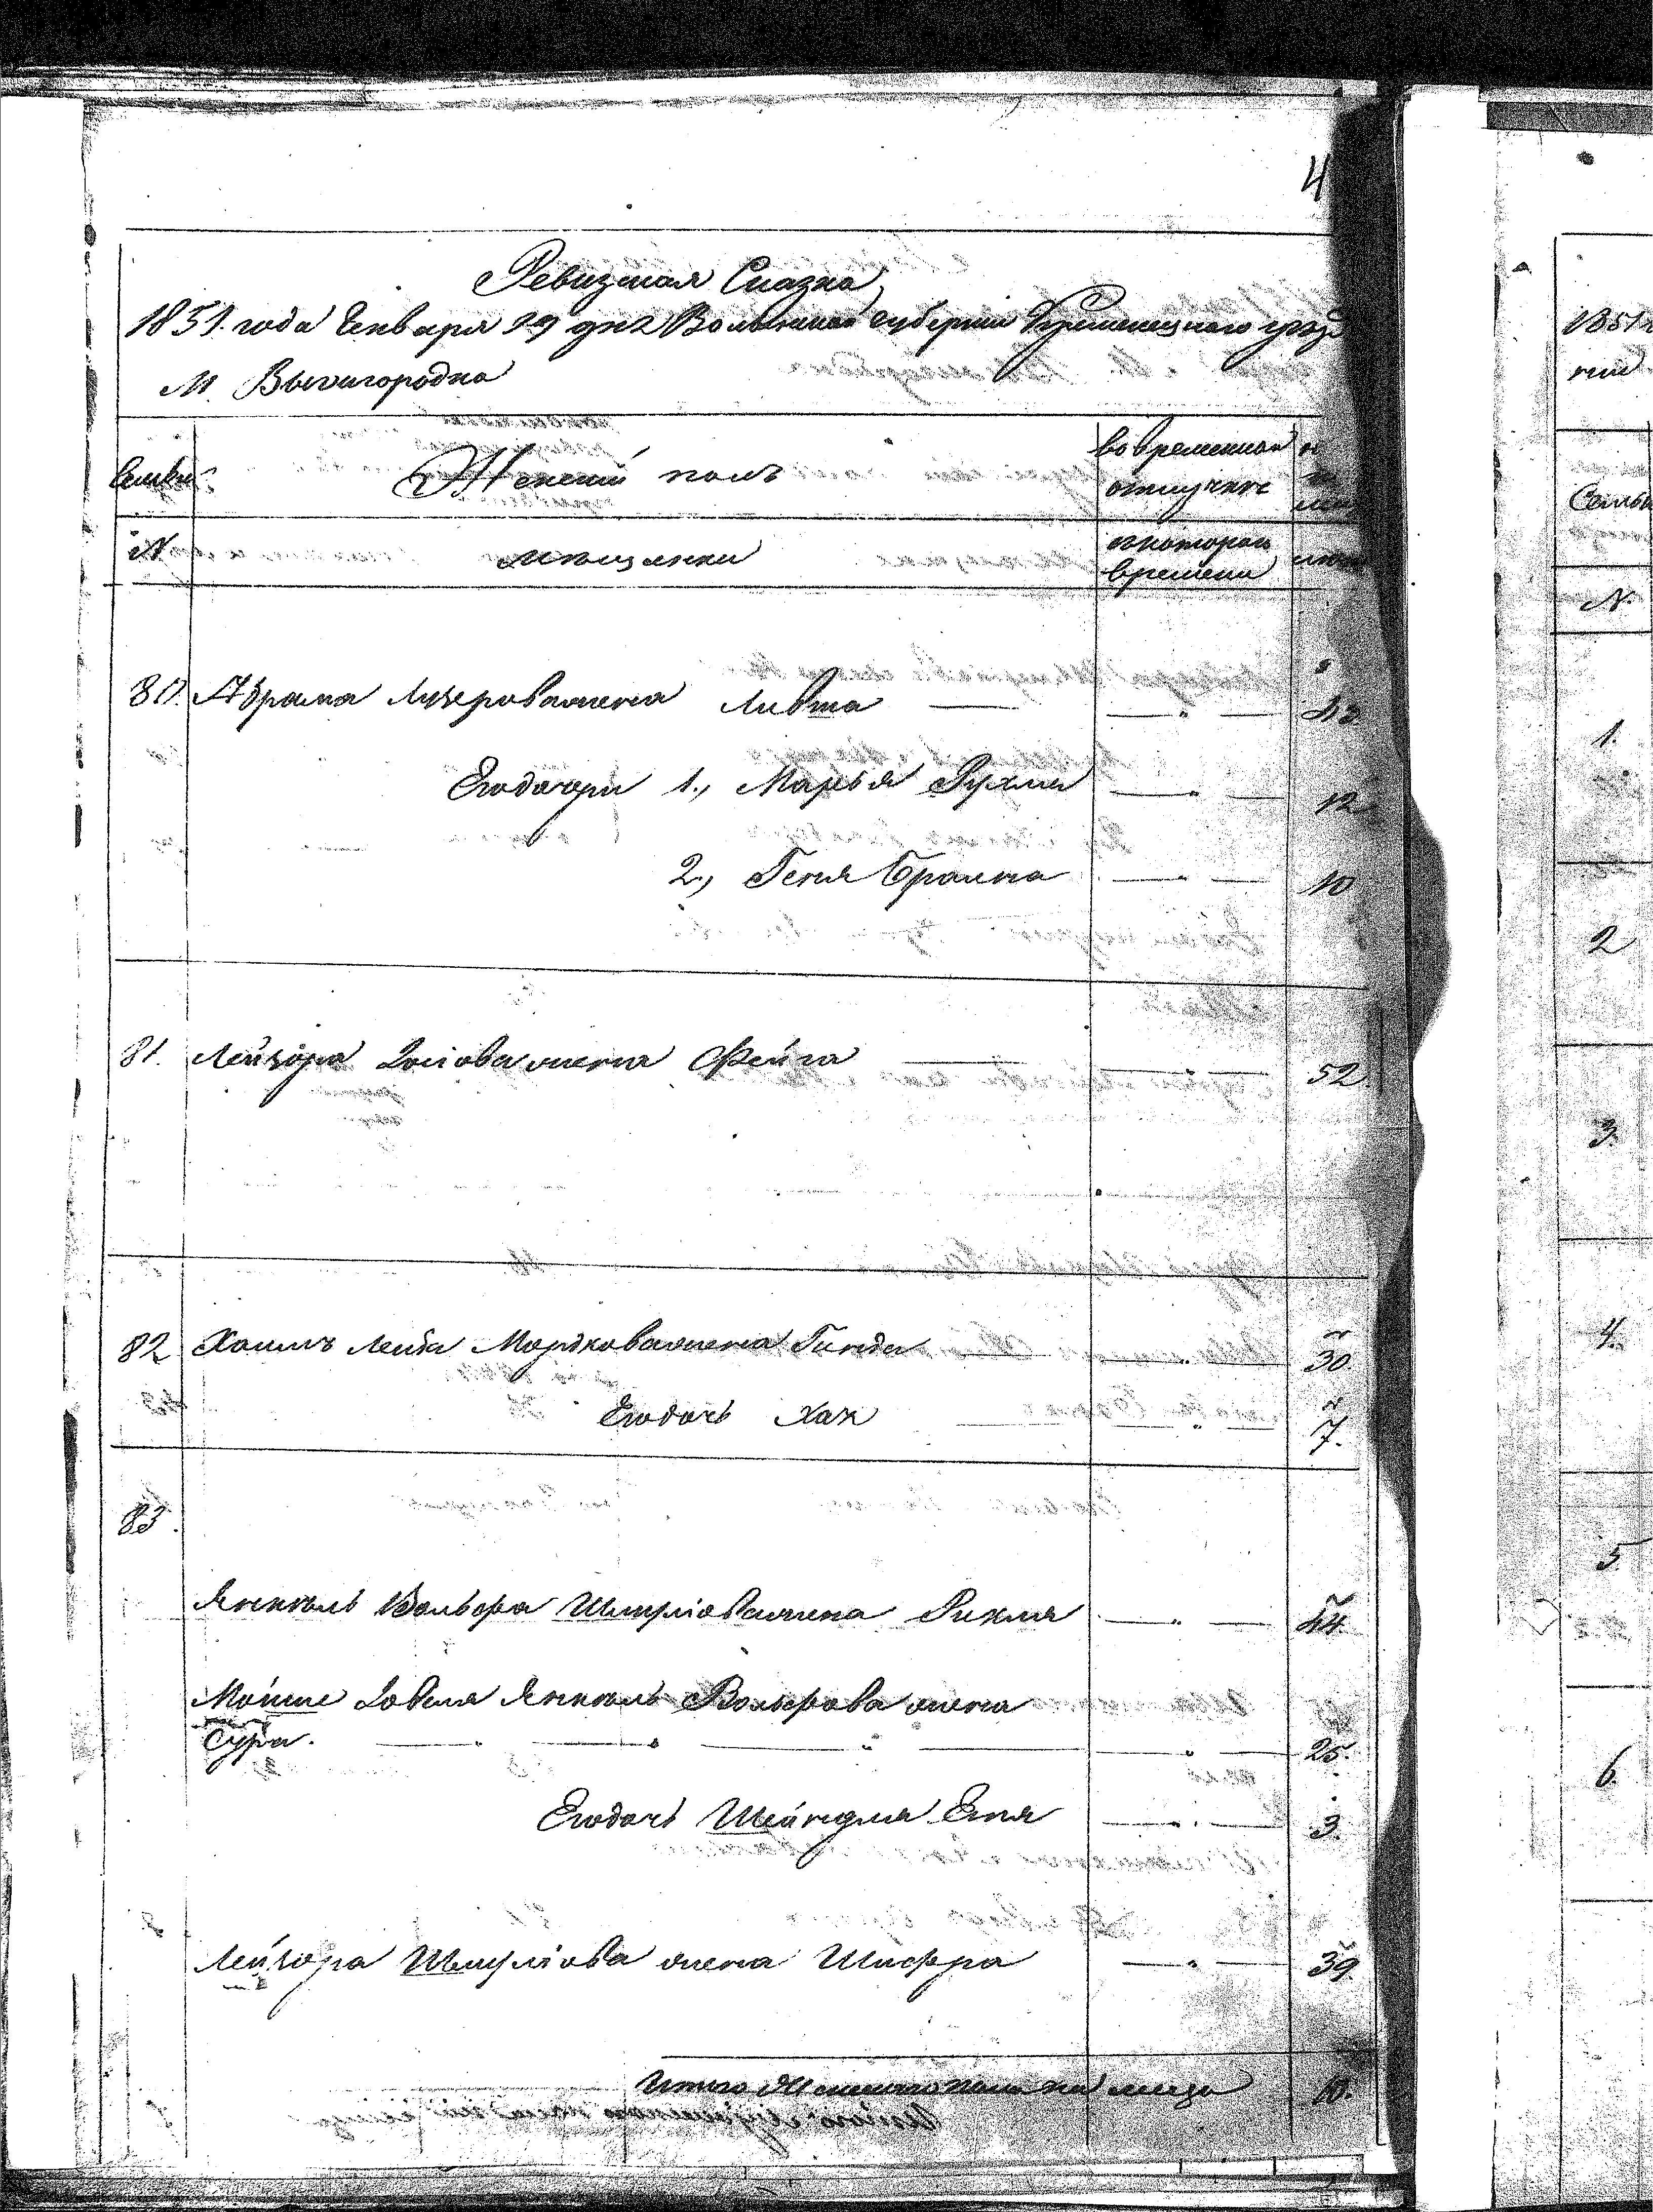 4
Ревизкая Сказка
1851. года Генваря 29 дня Волынской губернии Кременецкого уезд
М. Вышгородка
Семьи Женский полъ во временной
отлучке
N мещанки съ котораго
времени
80. Абрама Лизерова жена Ливша — " —
Его дочери 1., Марья Рухля — " — 12
2., Геня Браина — " — 10
81. Лейзора Iосiова жена Фейга — " — 52
82 Хаимъ Лейба Мордкова жена Гинда — " — 30.
Его дочь Хая — " — 7.
83.
Янкель Вольфа Шмулiова жена Рихля — " — 44.
Мойше Довеля Янкель Вольфова жена
Сура. — " — " — " — 25.
Его дочь Шейндля Еня — " — 3.
Лейзора Шмулiова жена Шифра — " — 39.
Итого Женского пола на лицо 10.
1851
Семьи
N.
1.
2
3.
4.
5
6.